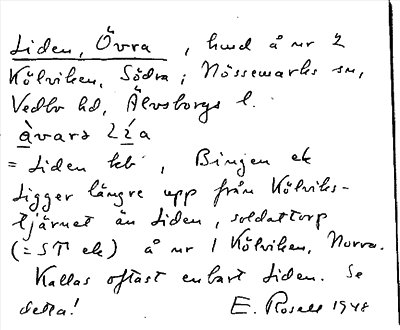 Liden, Övra, hmd å nr 2
Kölviken, Södra, Nössemarks sn,
Vedbo hd, Älvsborgs l.
àvara lia
= Liden lht, Bingen ek
Ligger längre upp från Kölviks-
tjärnet än Liden, soldattorp
(= ST ek) å nr 1 Kölviken, Norra.
Kallas oftast enbart Liden. Se
detta! E. Rosell 1948